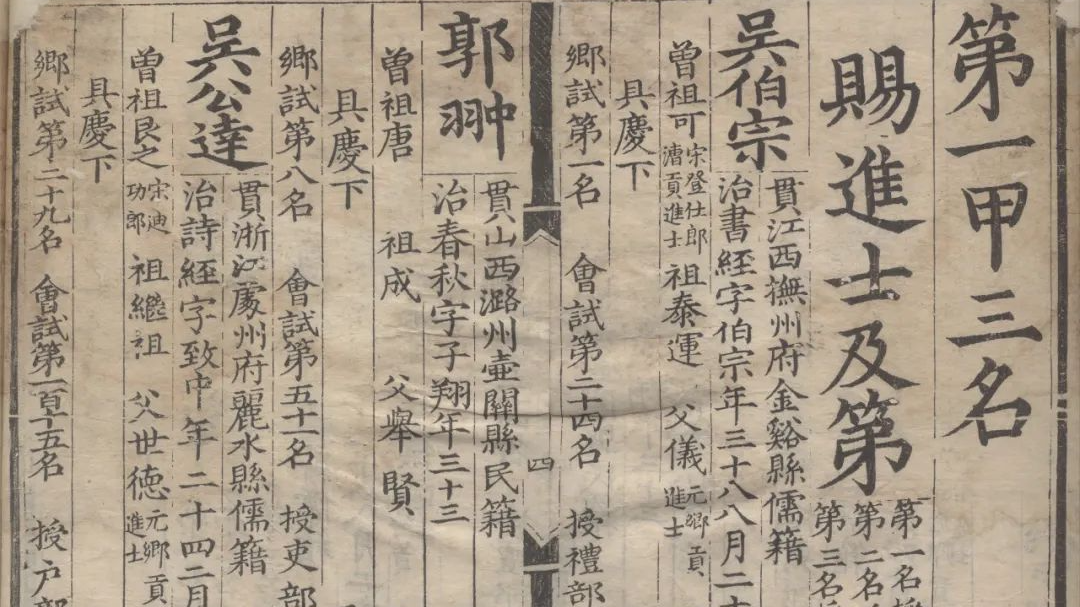 第一甲三名
賜進士及第
第一名
第二名
第三名
吳伯宗
貫江西撫州府金谿縣儒籍
治書經字伯宗年三十八八月二十
曾祖可宋登仕郎漕貢進士 祖泰運 父儀元鄉貢進士
具慶下
鄉試第一名 會試第二十四名 授禮部
四
郭翀
貫山西潞州壺關縣民籍
治春秋字子翔年三十三
曾祖唐 祖成 父舉賢
具慶下
鄉試第八名 會試第五十一名 授吏部
吳公達
貫浙江處州府麗水縣儒籍
治詩經字致中年二十四二月
曾祖艮之宋迪功郎 祖繼祖 父世德元鄉貢進士
具慶下
鄉試第二十九名 會試第一百十五名 授戶部